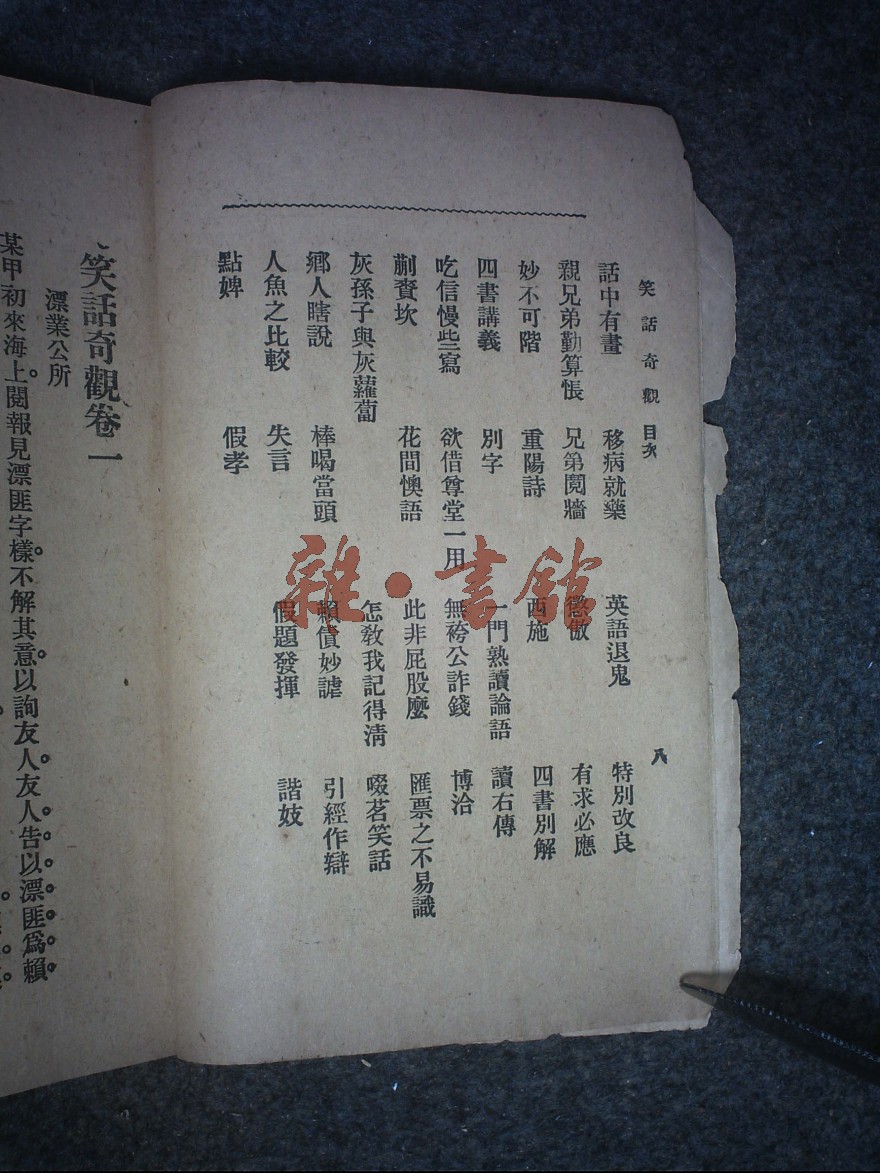 笑話奇觀 目次 八
話中有畫 移病就藥 英語退鬼 特別改良
親兄弟勤算帳 兄弟鬩牆 懲傲 有求必應
妙不可階 重陽詩 西施 四書別解
四書講義 別字 一門熟讀論語 讀右傳
吃信慢些寫 欲借尊堂一用 無袴公詐錢 博洽
蒯賚坎 花間懊語 此非屁股麼 匯票之不易識
灰孫子與灰蘿蔔 怎敎我記得淸 啜茗笑話
鄉人瞎說 棒喝當頭 賴債妙謔 引經作辯
人魚之比較 失言 假題發揮 諧妓
點婢 假孝
笑話奇觀卷一
漂業公所
某甲初來海上。閱報見漂匪字樣。不解其意。以詢友人。友人告以漂匪爲賴
雜·書館